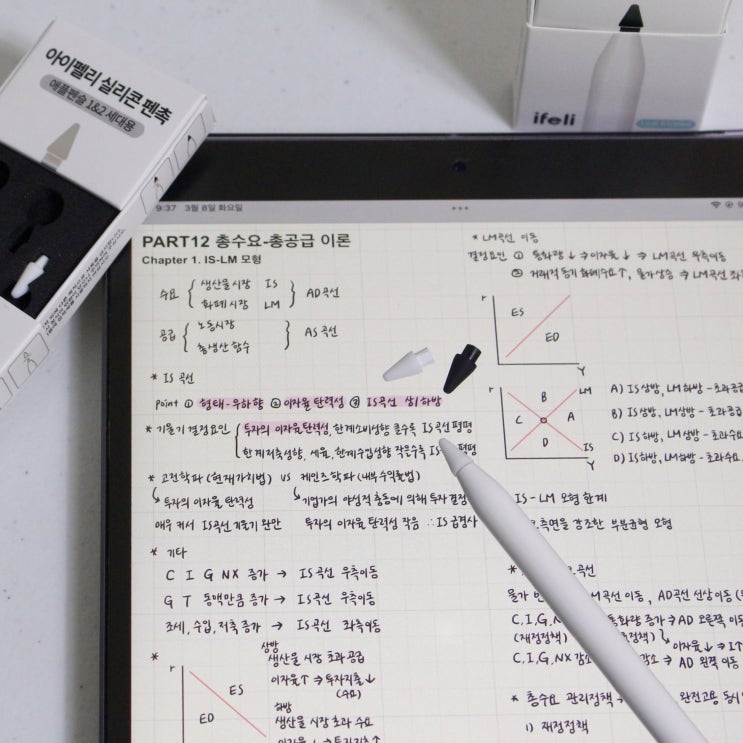 아이펠리 실리콘 펜촉
애플펜슬 1&2 세대용
ifeli
9:37 3월 8일 화요일
PART12 총수요-총공급 이론
Chapter 1. IS-LM 모형
수요 { 생산물시장 IS
화폐시장 LM } AD곡선
공급 { 노동시장
총생산함수 } AS곡선
* IS 곡선
point ① 형태-우하향 ② 이자율 탄력성 ③ IS곡선 상/하방
* 기울기 결정요인 { 투자의 이자율탄력성, 한계소비성향 클수록 IS곡선 평평
한계저축성향, 세율, 한계수입성향 작을수록 IS 평평
* 고전학파 (현재가치법) VS 케인즈학파 (내부수익률법)
↳ 투자의 이자율 탄력성
매우 커서 IS곡선 기울기 완만
↳ 기업가의 야성적 충동에 의해 투자 결정
투자의 이자율 탄력성 작음 ∴ IS 급경사
* 기타
C I G NX 증가 → IS곡선 우측이동
G T 동액만큼 증가 → IS곡선 우측이동
조세, 수입, 저축 증가 → IS곡선 좌측이동
*
r
ES
ED
상방
생산물 시장 초과공급
이자율↑ ⇒ 투자지출↓
(수요)
하방
생산물 시장 초과 수요
이자율↓ ⇒ 투자지출↑
* LM곡선 이동
결정요인 ① 통화량↓ ⇒ 이자율↓ ⇒ LM곡선 우측이동
② 거래적 동기 화폐수요↑, 물가상승 ⇒ LM곡선 좌
r
ES
ED
Y
r
LM
B
C
A
D
IS
Y
A) IS상방, LM하방 - 초과공급
B) IS상방, LM상방 - 초과공급
C) IS하방, LM상방 - 초과수요
D) IS하방, LM하방 - 초과수요
IS-LM 모형 한계
측면을 강조한 부분균형 모형
곡선
물가 곡선 이동, AD곡선 선상이동
C, I, G, 통화량 증가 ⇒ AD 오른쪽 이동
(재정정책)
↳ 이자율↓ ⇒ I↑
C, I, G, NX 감소 감소 ⇒ AD 왼쪽 이동
* 총수요 관리정책 → 완전고용
1) 재정정책